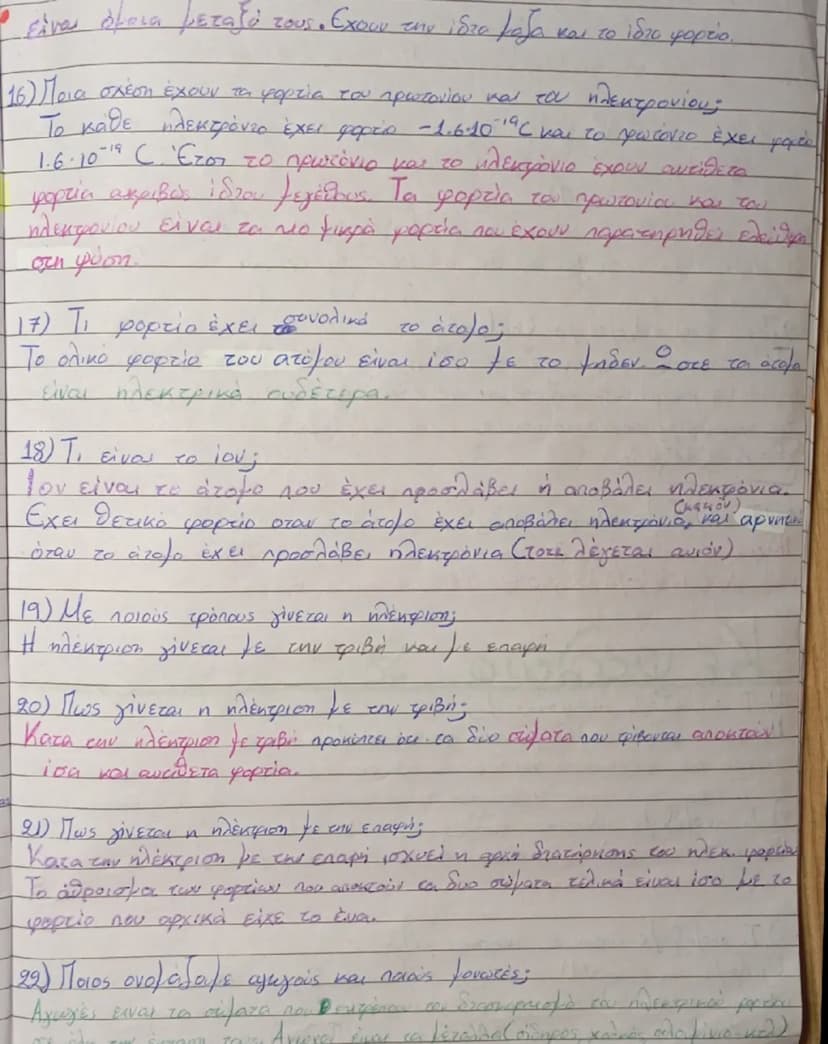 είναι όμοια μεταξύ τους. Έχουν την ίδια μαζα και το ίδιο φορτίο.
16) Ποια σχέση έχουν τα φορτία του πρωτονίου και του ηλεκτρονίου;
Το κάθε ηλεκτρόνιο έχει φορτίο -1.6·10⁻¹⁹C και το πρωτόνιο έχει φορτίο
1.6·10⁻¹⁹ C. Έτσι το πρωτόνιο και το ηλεκτρόνιο έχουν αντίθετα
φορτία ακριβώς ίδιου μεγέθους. Τα φορτία του πρωτονίου και του
ηλεκτρονίου είναι τα πιο μικρά φορτία που έχουν παρατηρηθεί ελεύθερα
στη φύση.
17) Τι φορτίο έχει συνολικά το άτομο;
Το ολικό φορτίο του ατόμου είναι ίσο με το μηδεν. Ωστε τα άτομα
είναι ηλεκτρικά ουδέτερα.
18) Τι είναι το ιον;
Ιον είναι το άτομο που έχει προσλάβει ή αποβάλει ηλεκτρόνια.
Έχει θετικό φορτίο οταν το άτομο έχει αποβάλει ηλεκτρόνια, (κατιόν) και αρνητικό
όταν το άτομο έχει προσλάβει ηλεκτρόνια (τοτε λέγεται ανιόν)
19) Με ποιούς τρόπους γίνεται η ηλέκτριση;
Η ηλέκτριση γίνεται με την τριβή και με επαφή
20) Πως γίνεται η ηλέκτριση με την τριβή;
Κατα την ηλέκτριση με τριβή προκύπτει ότι τα δύο σώματα που τρίβονται αποκτούν
ίσα και αντίθετα φορτία.
21) Πως γίνεται η ηλέκτριση με την επαφή;
Κατα την ηλέκτριση με την επαφή ισχυεί η αρχή διατήρησης του ηλεκ. φορτίου
Το άθροισμα των φορτίων που αποκτούν τα δυο σώματα τελικά είναι ίσο με το
φορτίο που αρχικά είχε το ένα.
22) Ποιος ονομάζαμε αγωγούς και ποιούς μονωτές;
Αγωγός ειναι τα σώματα που επιτρέπουν το διασκορπισμό του ηλεκτρικού φορτίου
σε όλη την έκταση τους. Αγωγοί είναι τα μέταλλα (σίδηρος, χαλκός, αλουμίνιο κτλ)